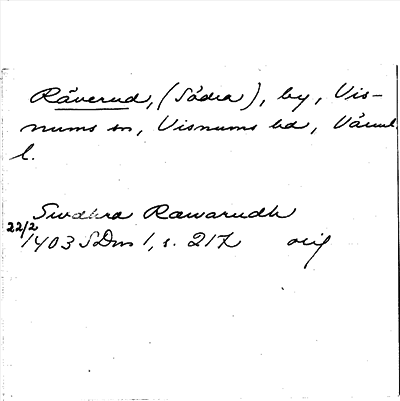 Råverud, (Södra), by, Vis-
nums sn, Visnums hd, Värml.
l.
Swdhra Rawarudh
22/2
1403 SDns 1, s. 217 orig